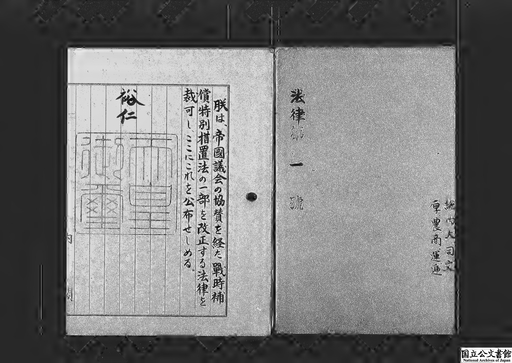 法律第一號
朕は、帝國議会の協賛を経た戰時補
償特別措置法の一部を改正する法律を
裁可し、ここにこれを公布せしめる。
裕仁
天皇
御璽
国立公文書館
National Archives of Japan